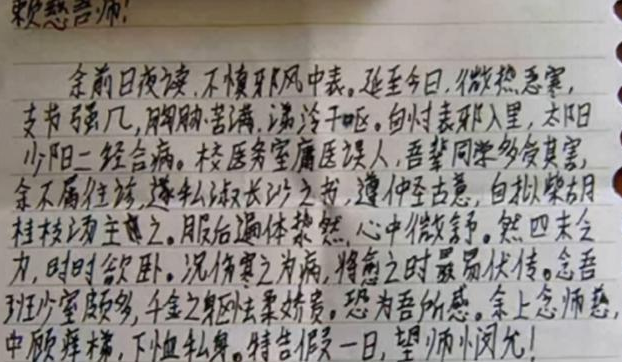 赖慈吾师!
余前日夜读,不慎邪风中表。延至今日,微热恶寒,
支节强几,胸胁苦满,涕泠干呕。自忖表邪入里,太阳
少阳二经合病。校医务室庸医误人,吾辈同学多受其害,
余不屑往诊,遂私淑长沙之书,遵仲圣古意,自拟柴胡
桂枝汤主之。服后遍体漐然,心中微舒。然四末乏
力,时时欲卧。况伤寒之为病,将愈之时最易伏传。念吾
班少室颇多,千金之躯怯柔娇贵。恐为吾所感。余上念师慈,
中顾痒梯,下恤私身。特告假一日,望师小闵允!